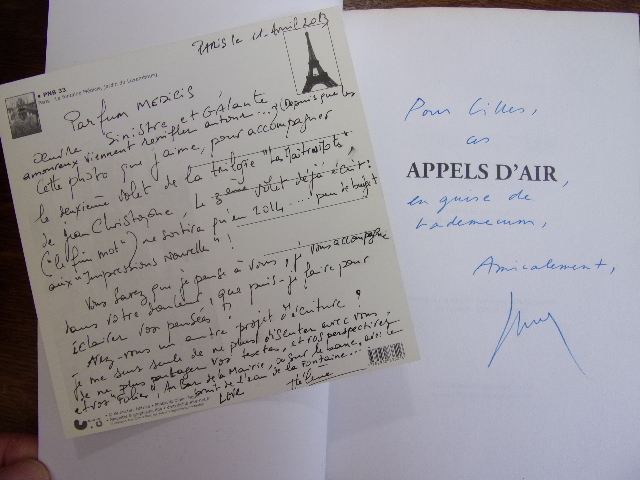 PARIS le 11 Avril 2013
• PNB 33
Paris - La fontaine Médicis, Jardin du Luxembourg
Parfum MEDICIS
Sinistre et GAlante
amoureux viennent ronfler autour... (Depuis que les
Cette photo que j'aime, pour accompagner
le deuxième volet de la trilogie "
de Jean Christophe, le 3ème volet déjà écrit!
("le fin mot") ne sortira qu'en 2014... ! peu de budget
aux "Impressions Nouvelle" !
Vous savez que je pense à vous, j' vous accompagne
dans votre douleur, que puis-je faire pour
éclairer vos pensées ?
Avez-vous un autre projet d'écriture ?
je me sens seule de ne plus discuter avec vous
de ne plus partager vos textes, et vos perspectives
et vos folies, Au Bar de la Mairie, ou sur le banc, avec le
bruit de l'eau de la Fontaine...
LOVE
Pour Gilles,
ces
APPELS D'AIR,
en guise de
vademecum,
Amicalement,